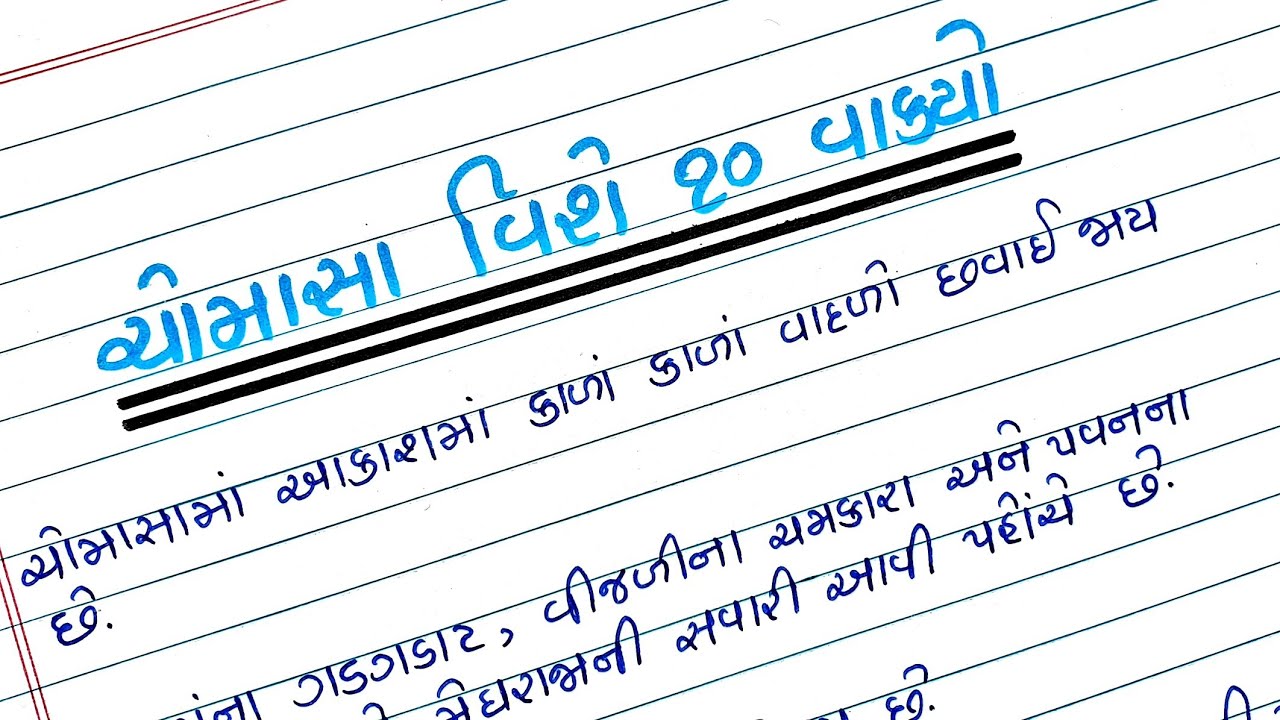 ચોમાસા વિશે ૧૦ વાક્યો
ચોમાસામાં આકાશમાં કાળાં કાળાં વાદળો છવાઈ જાય
છે.
ગડગડાટ, વીજળીના ચમકારા અને પવનના
મેઘરાજાની સવારી આવી પહોંચે છે.
છે.